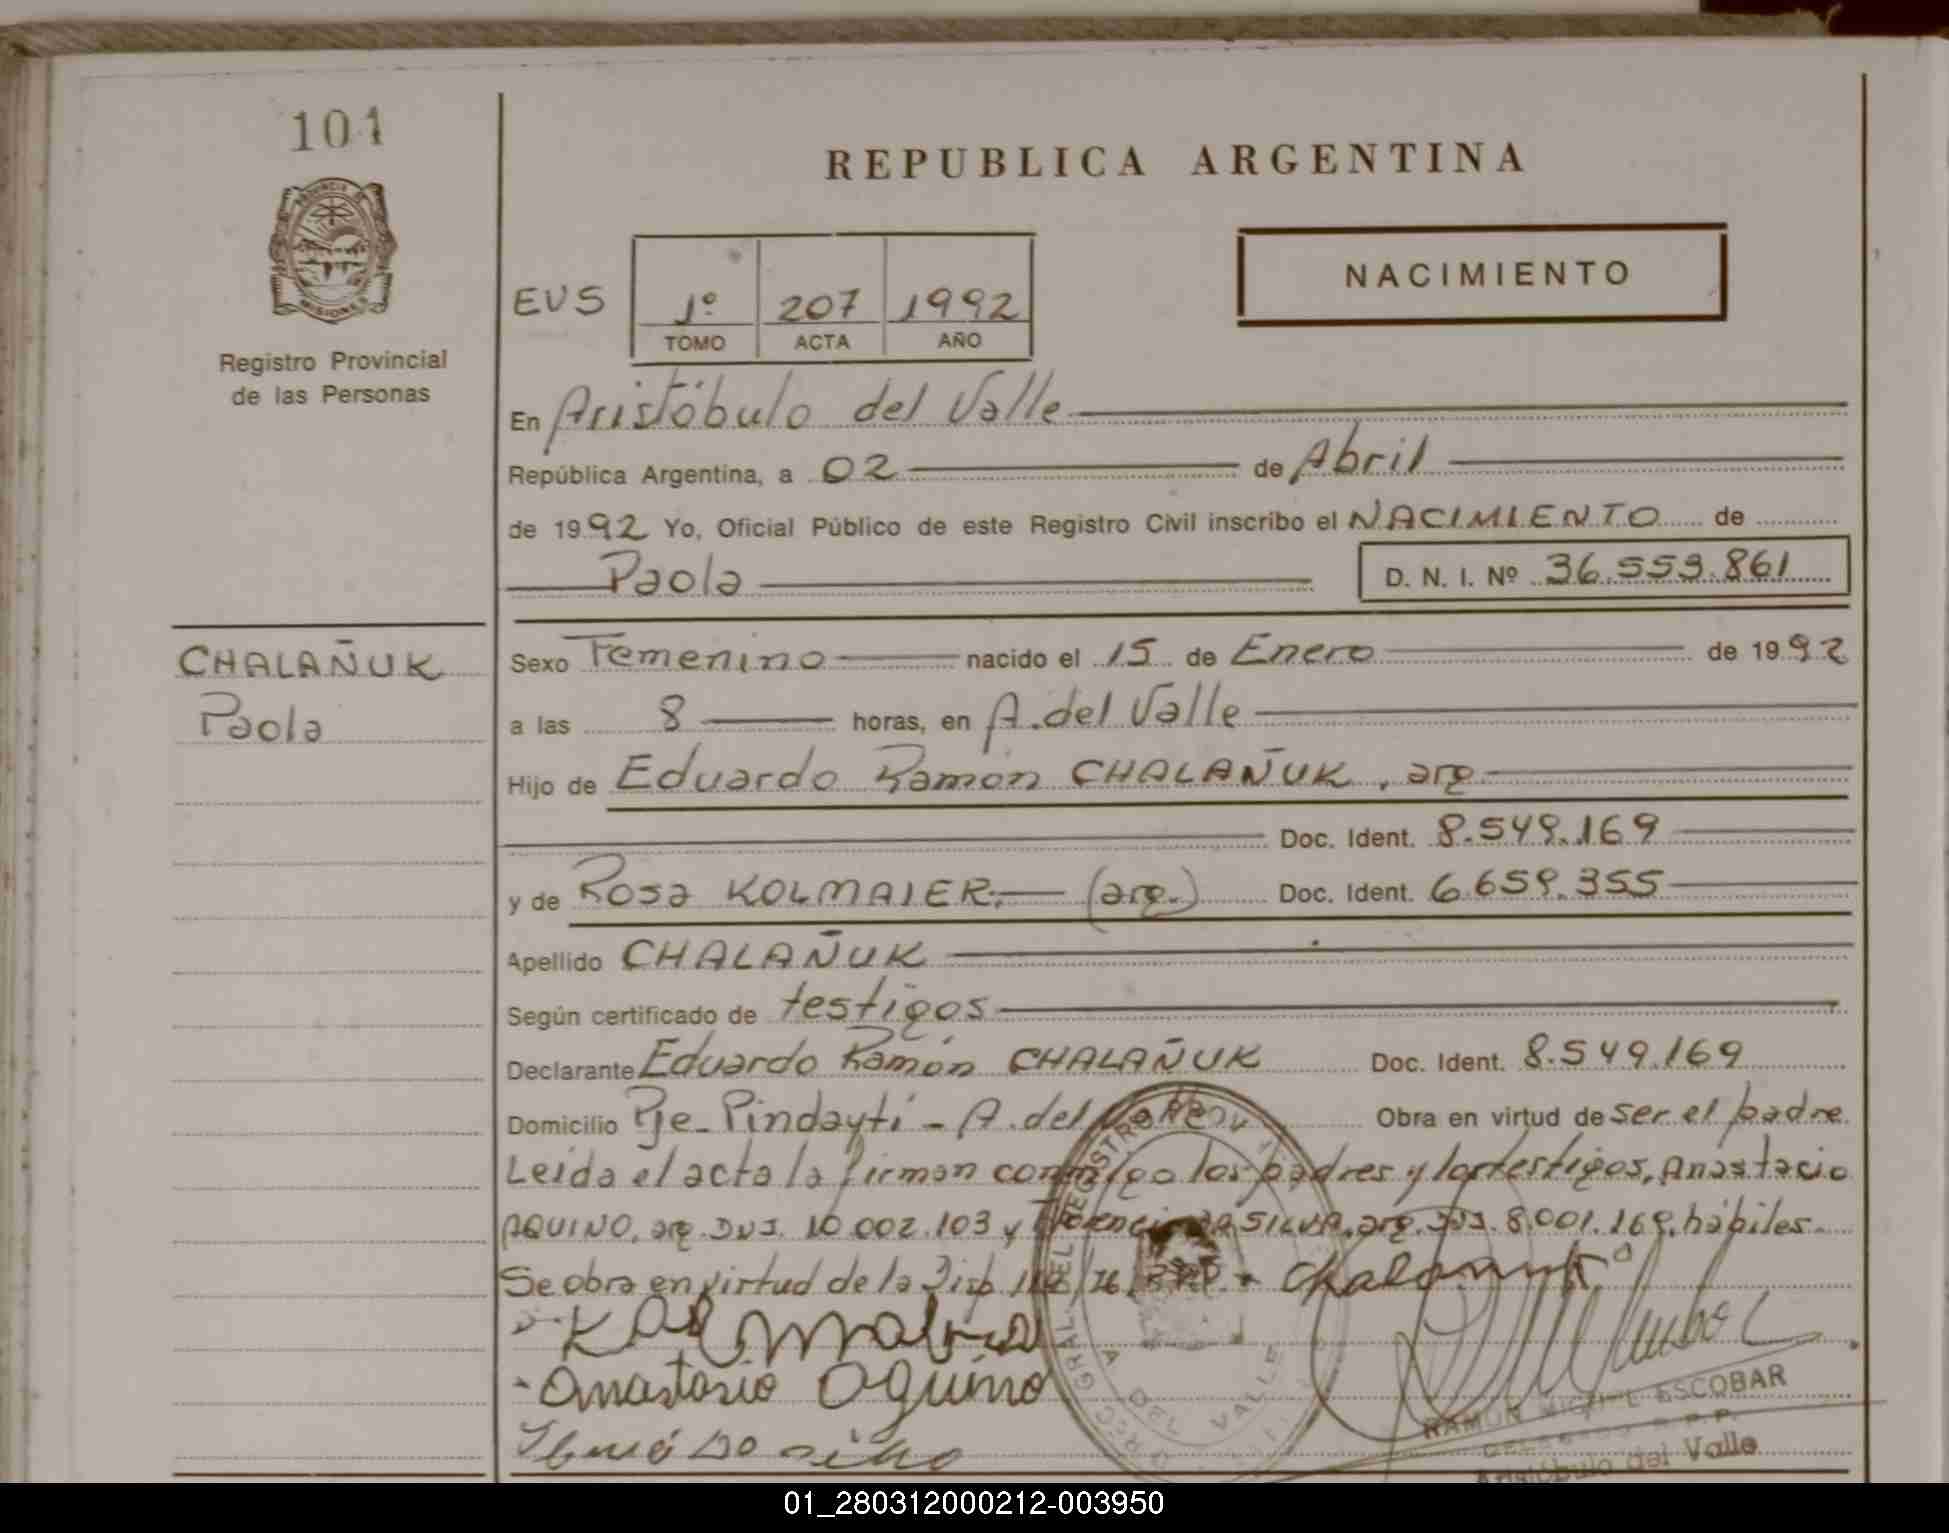 101
PROVINCIA DE
MISIONES
Registro Provincial
de las Personas
REPUBLICA ARGENTINA
NACIMIENTO
EVS 1º 207 1992
TOMO ACTA AÑO
En Aristóbulo del Valle
República Argentina, a 02 de Abril
de 1992 Yo, Oficial Público de este Registro Civil inscribo el NACIMIENTO de
Paola D. N. I. Nº 36.559.861
CHALAÑUK
Paola
Sexo Femenino nacido el 15 de Enero de 1992
a las 8 horas, en A. del Valle
Hijo de Eduardo Ramón CHALAÑUK, arg
Doc. Ident. 8.549.169
y de Rosa KOLMAIER.- (arg.) Doc. Ident. 6.659.355
Apellido CHALAÑUK
Según certificado de testigos
Declarante Eduardo Ramón CHALAÑUK Doc. Ident. 8.549.169
Domicilio Pje. Pindaytí - A. del Valle Obra en virtud de ser el padre
Leída el acta la firman conmigo los padres y los testigos, Anastacio
AQUINO, arg. DNI. 10.002.103 y DA SILVA, arg. DNI. 8.001.169, hábiles.
Se obra en virtud de la Disp.
Chalanuk
Anastasio Aquino
RAMON MIGUEL ESCOBAR
DELEGADO R.P.P.
Aristóbulo del Valle
01_280312000212-003950